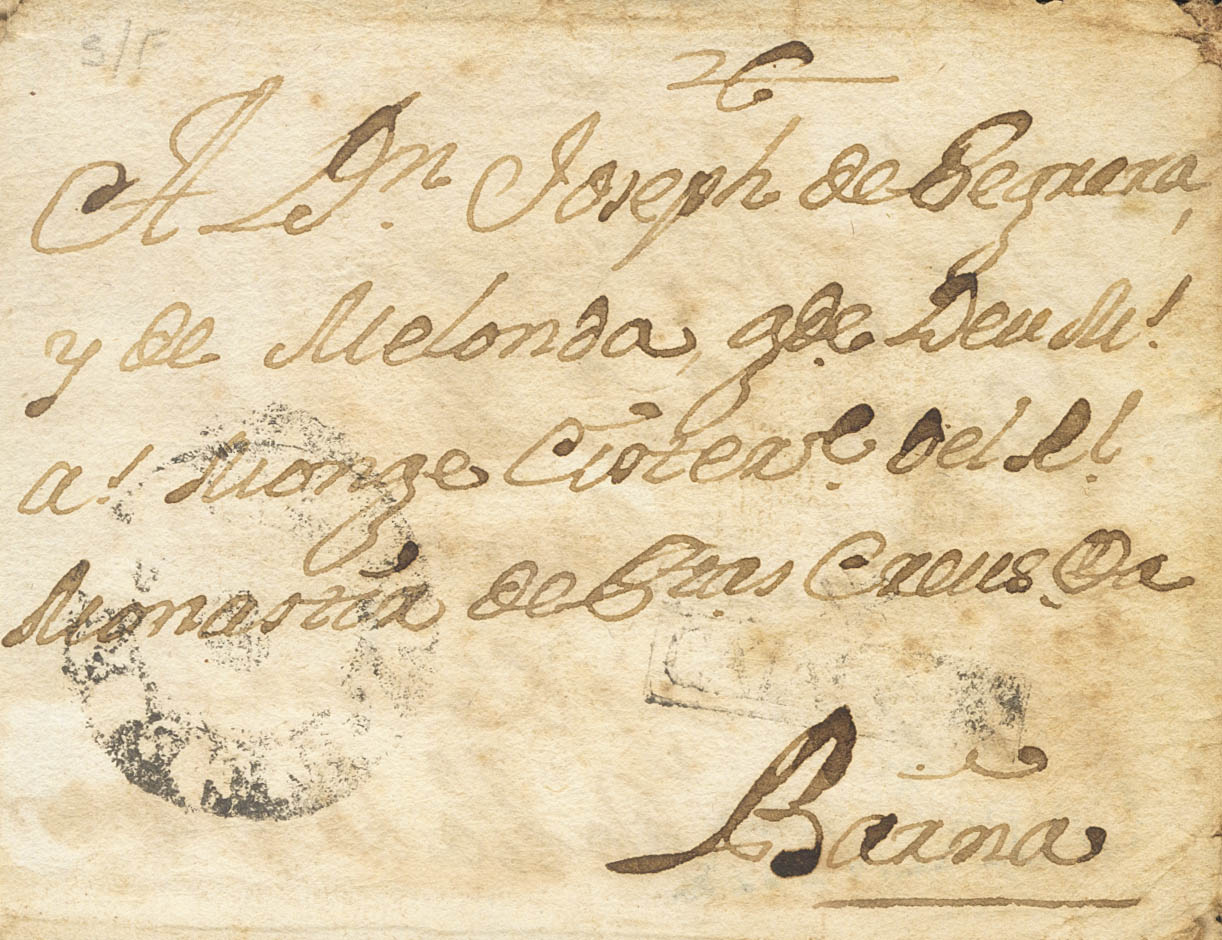 S/F
A Dn. Joseph de Seguera,
y de Melonda, gde. Deu M.s
a.s Monge Cister.e del Rl.
Monastir de Stas Creus. Da
Barna